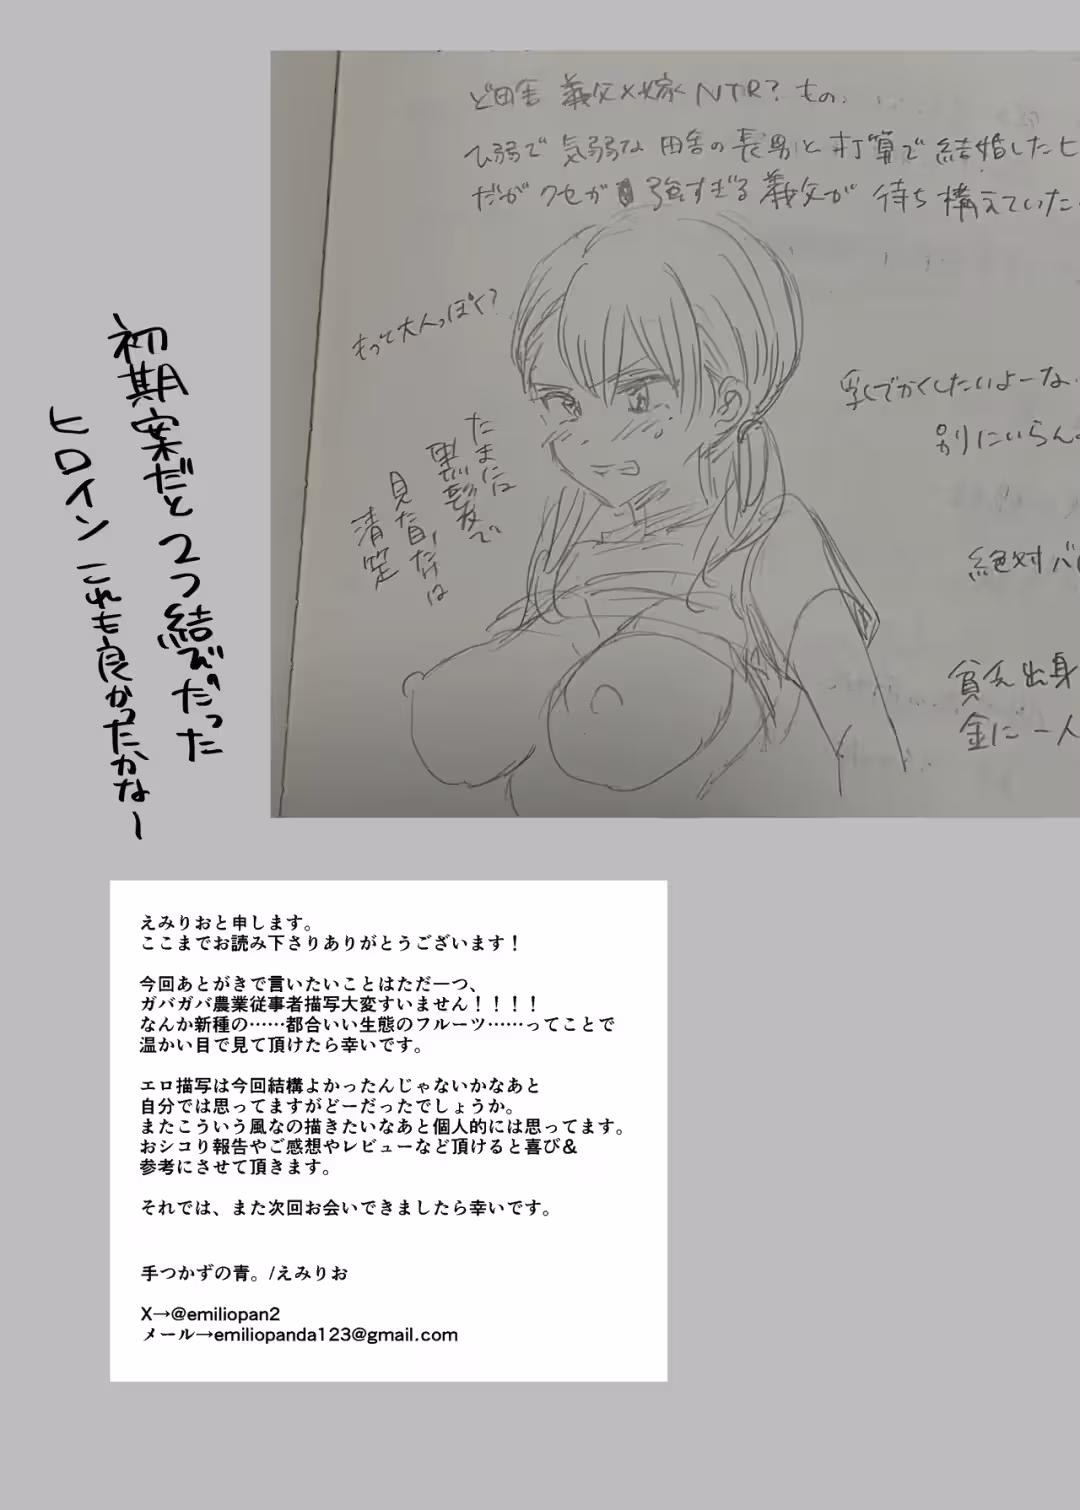 ど田舎 義父×嫁 NTR? もの
ひ弱で気弱な田舎の長男と打算で結婚したヒ
だがクセが強すぎる義父が待ち構えていた
もっと大人っぽく?
たまには
黒髪で
見た目だけは
清楚
乳でかくしたいよーな
別にいらん
絶対バ
貧乏出身
金に一人
初期案だと2つ結びだった
ヒロイン これも良かったかなー
えみりおと申します。
ここまでお読み下さりありがとうございます!
今回あとがきで言いたいことはただ一つ、
ガバガバ農業従事者描写大変すいません!!!!
なんか新種の……都合いい生態のフルーツ……ってことで
温かい目で見て頂けたら幸いです。
エロ描写は今回結構よかったんじゃないかなあと
自分では思ってますがどーだったでしょうか。
またこういう風なの描きたいなあと個人的には思ってます。
おシコり報告やご感想やレビューなど頂けると喜び&
参考にさせて頂きます。
それでは、また次回お会いできましたら幸いです。
手つかずの青。/えみりお
X→@emiliopan2
メール→emiliopanda123@gmail.com